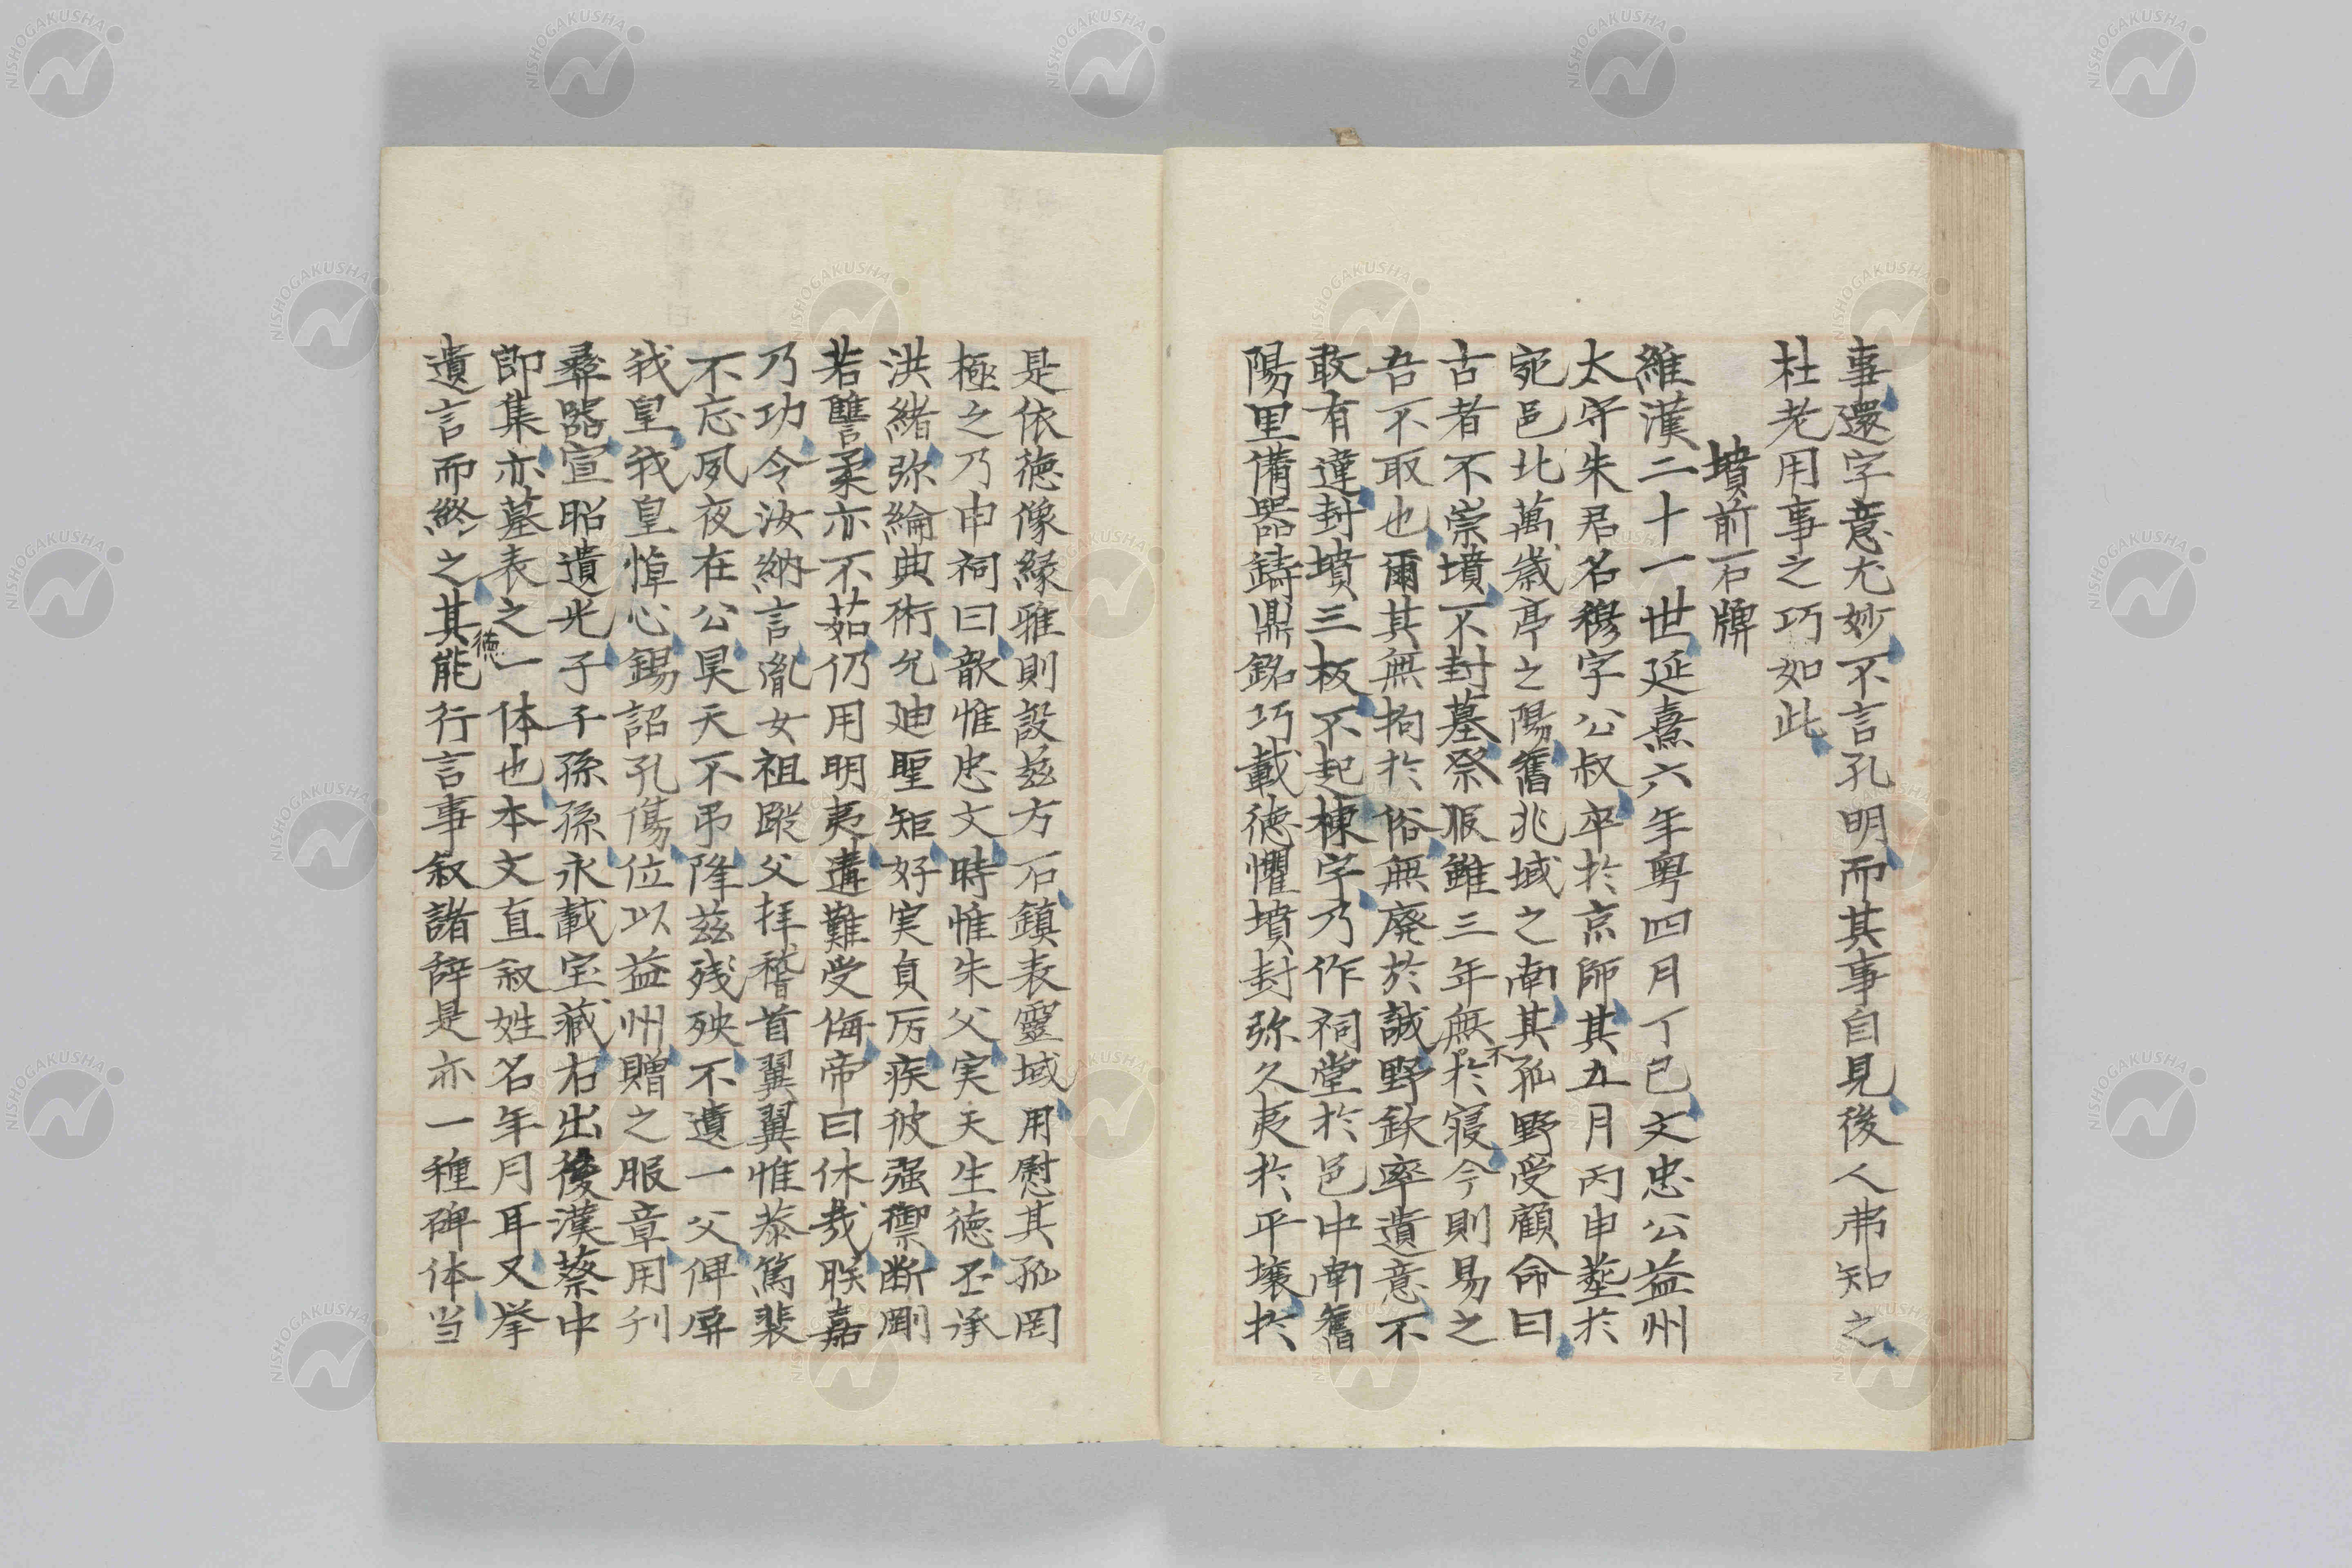 事還字意尤妙不言孔明而其事自見後人弗知之
杜老用事之巧如此
墳前石牌
維漢二十一世延熹六年粤四月丁巳文忠公益州
太守朱君名穆字公叔卒於京師其五月丙申塟於
宛邑北萬歳亭之陽舊兆域之南其孤野受顧命曰
古者不崇墳不封墓祭服雖三年無不於寝今則易之
吾不取也爾其無拘於俗無廃於誠野欽率遺意不
敢有違封墳三板不起棟宇乃作祠堂於邑中南舊
陽里備器鋳鼎銘巧載徳懼墳封弥久夷於平壌於
是依徳像縁雅則設茲方石鎮表靈域用慰其孤罔
極之乃申祠曰歆惟忠文時惟朱父実天生徳丕承
洪緒弥綸典術允廸聖矩好実貞厉疾彼强禦断剛
若讐柔亦不茹仍用明夷遘難受侮帝曰休哉朕嘉
乃功令汝納言胤女祖蹤父拝稽首翼翼惟恭篤棐
不忘夙夜在公昊天不弔降茲残殃不遺一父俾屏
我皇我皇悼心錫詔孔傷位以益州贈之服章用刋
彛器宣昭遺光子子孫孫永載宝藏右出後漢蔡中
郎集亦墓表之一体也本文直叙姓名年月耳又挙
遺言而終之其徳能行言事叙諸辞是亦一種碑体当
NISHOGAKUSHA